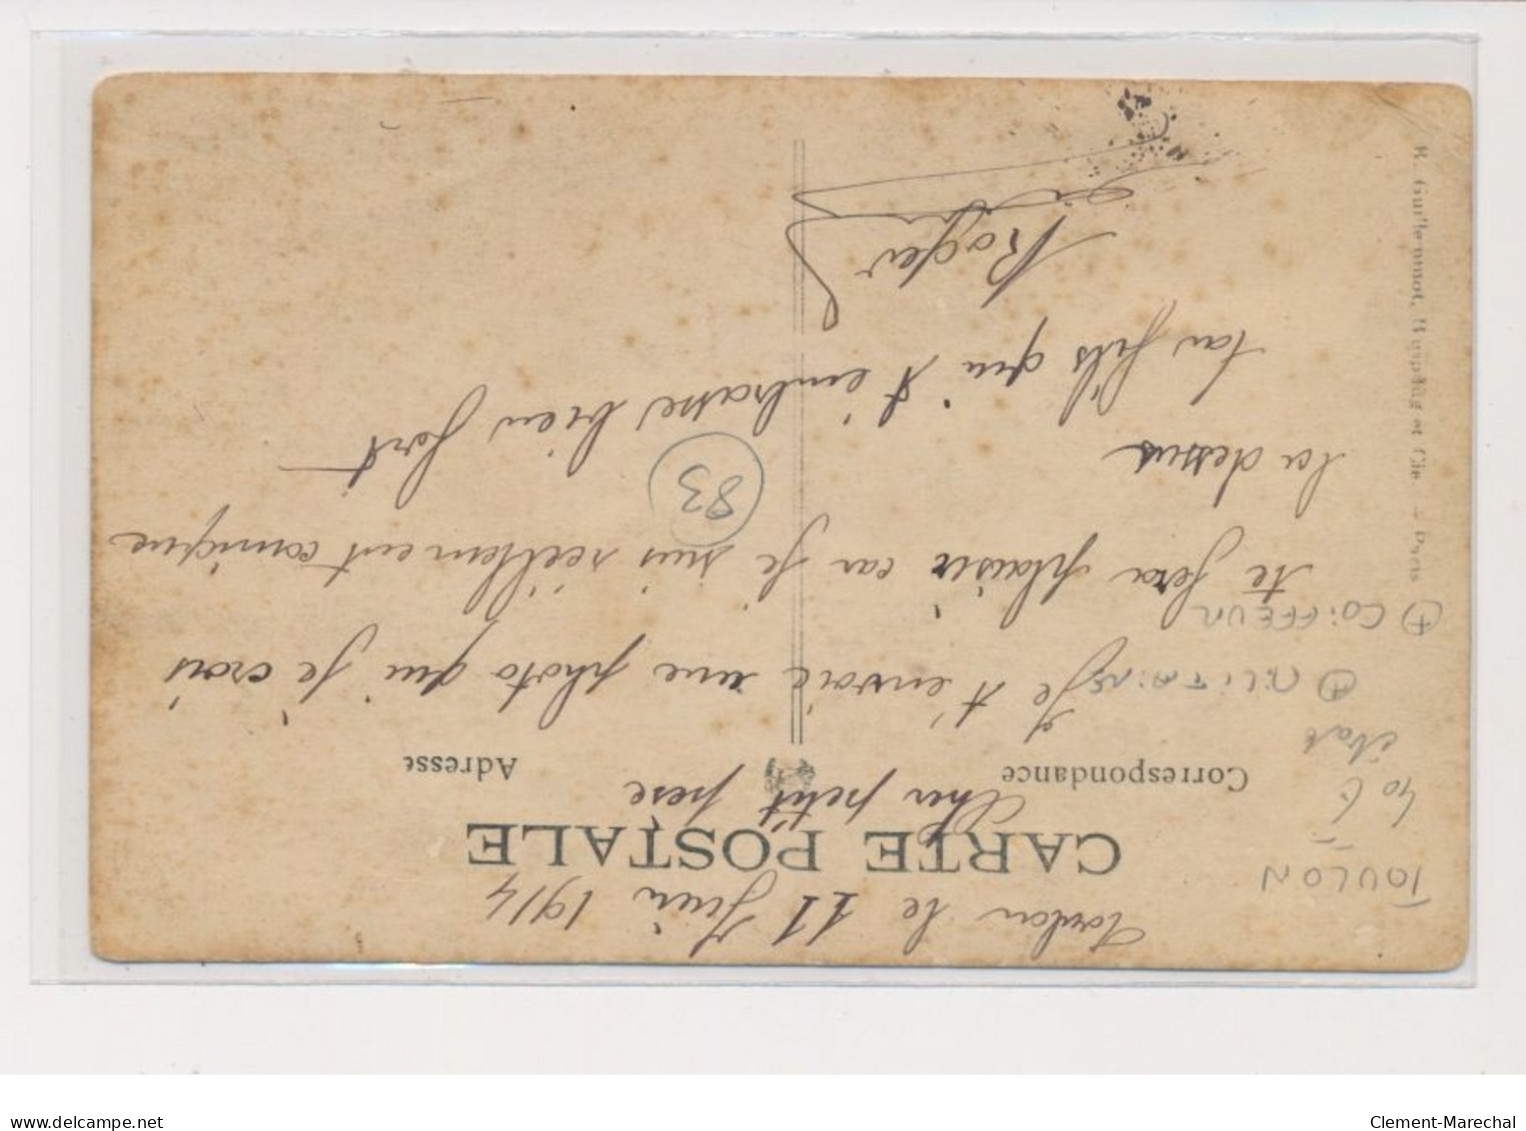 Toulon le 11 Juin 1914
CARTE POSTALE
Cher petit père
Correspondance
Adresse
Je t'envoie une photo que je crois
te fera plaisir car je suis réellement comique
la dessus
ton fils qui t'embrasse bien fort
Roger
83
TOULON
40 €
état
+ MILITAIRES
+ COIFFEUR
R. Guilleminot, Bœspflug et Cie - Paris
delcampe.net
Clement-Marechal